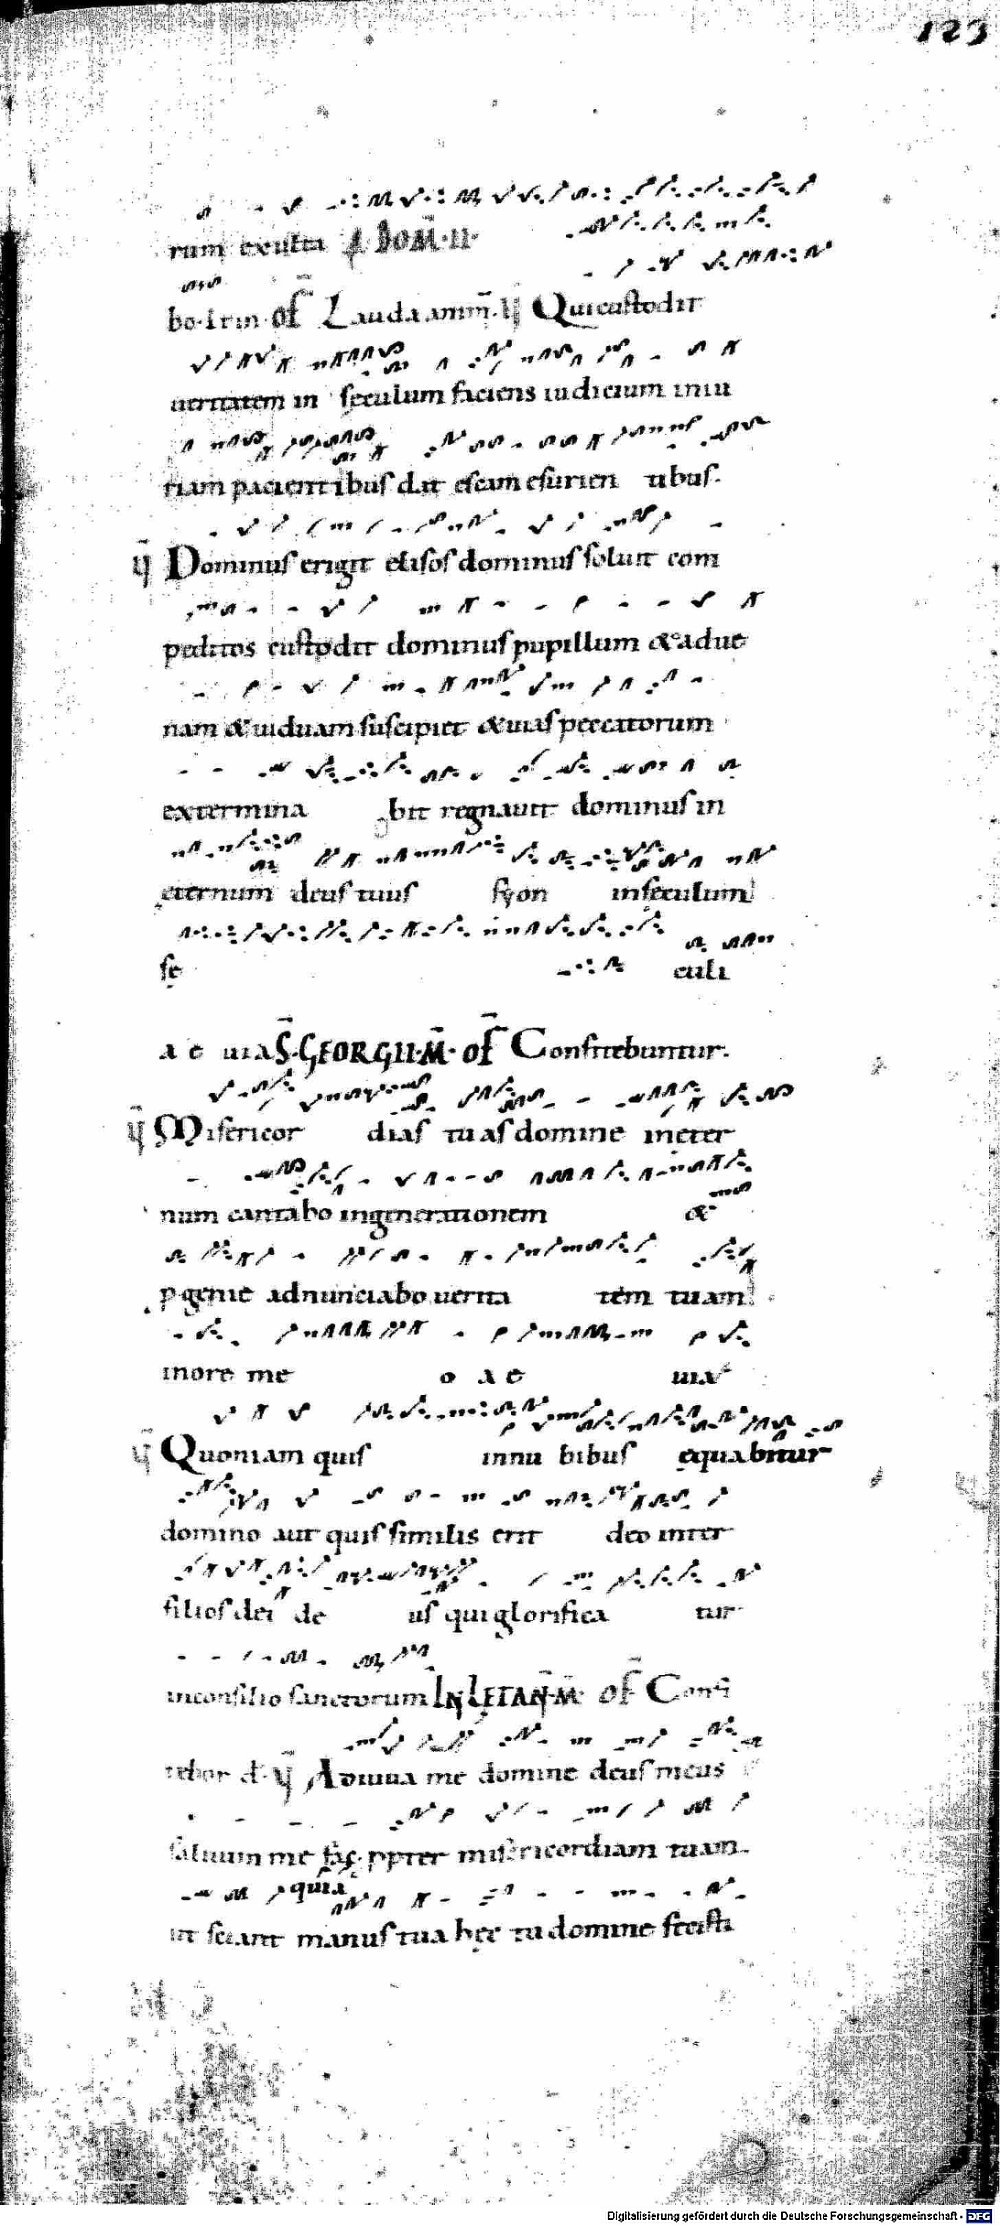 123
rum exulta DOM·II·
bo· of Lauda anim̄. Qui custodit
ueritatem in sęculum faciens iudicium iniu
riam pacientibus dat escam esurien tibus.
Dominus erigit elisos dominus soluit com
peditos custodit dominus pupillum & adue
nam & uiduam suscipiet & uias peccatorum
extermina bit regnauit dominus in
ęternum deus tuus syon in sęculum
sę culi
a e uia S·GEORGII·M̄· of̄ Confitebuntur.
Misericor dias tuas domine in eter
num cantabo in generationem &
p genie adnunciabo uerita tem tuam
in ore me o a e uia
Quoniam quis in nu bibus ęquabitur
domino aut quis similis erit deo inter
filios dei de us qui glorifica tur
in consilio sanctorum IN LETAN̄·M̄· of̄ Confi
tebor d· Adiuua me domine deus meus
saluum me fac ppter misericordiam tuam
quia
ut sciant manus tua hęc tu domine fecisti
Digitalisierung gefördert durch die Deutsche Forschungsgemeinschaft - DFG